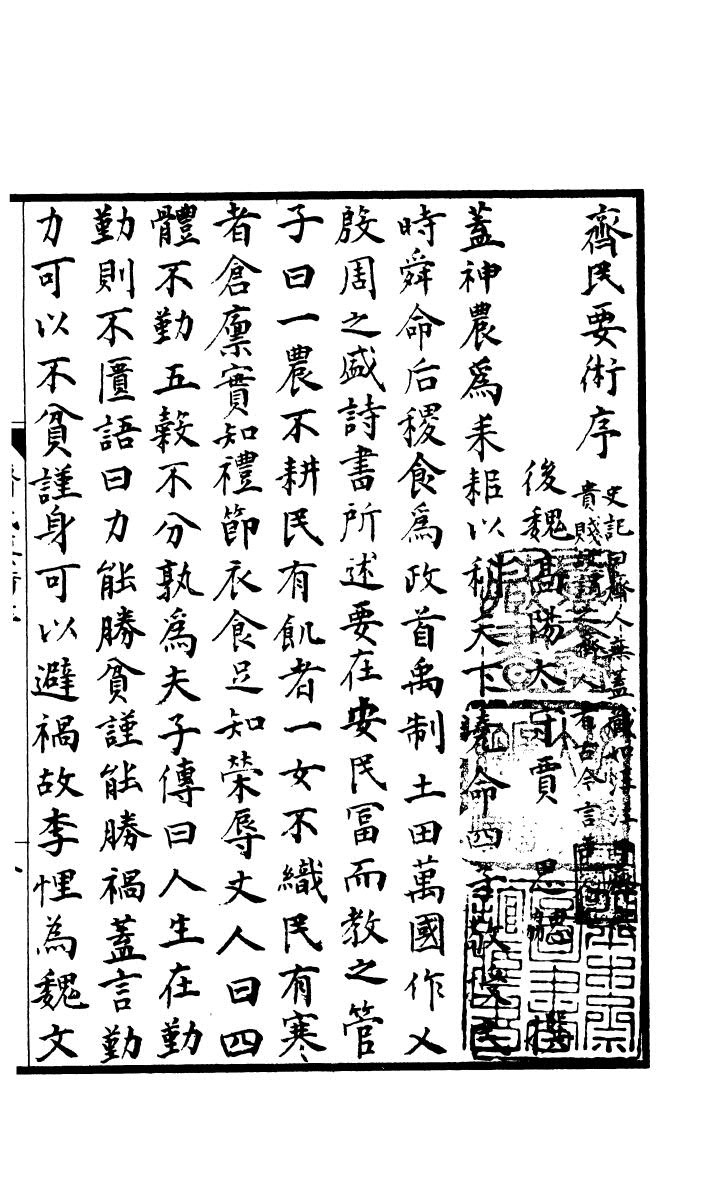 齊民要術序 史記曰齊人無蓋藏如淳注曰齊
貴賤故謂之齊人者古今言
後魏高陽太守賈思勰撰
蓋神農爲耒耜以利天下堯命四子敬授民
時舜命后稷食爲政首禹制土田萬國作乂
殷周之盛詩書所述要在安民冨而教之管
子曰一農不耕民有飢者一女不織民有寒
者倉廪實知禮節衣食足知榮辱丈人曰四
體不勤五穀不分孰爲夫子傳曰人生在勤
勤則不匱語曰力能勝貧謹能勝禍蓋言勤
力可以不貧謹身可以避禍故李悝為魏文